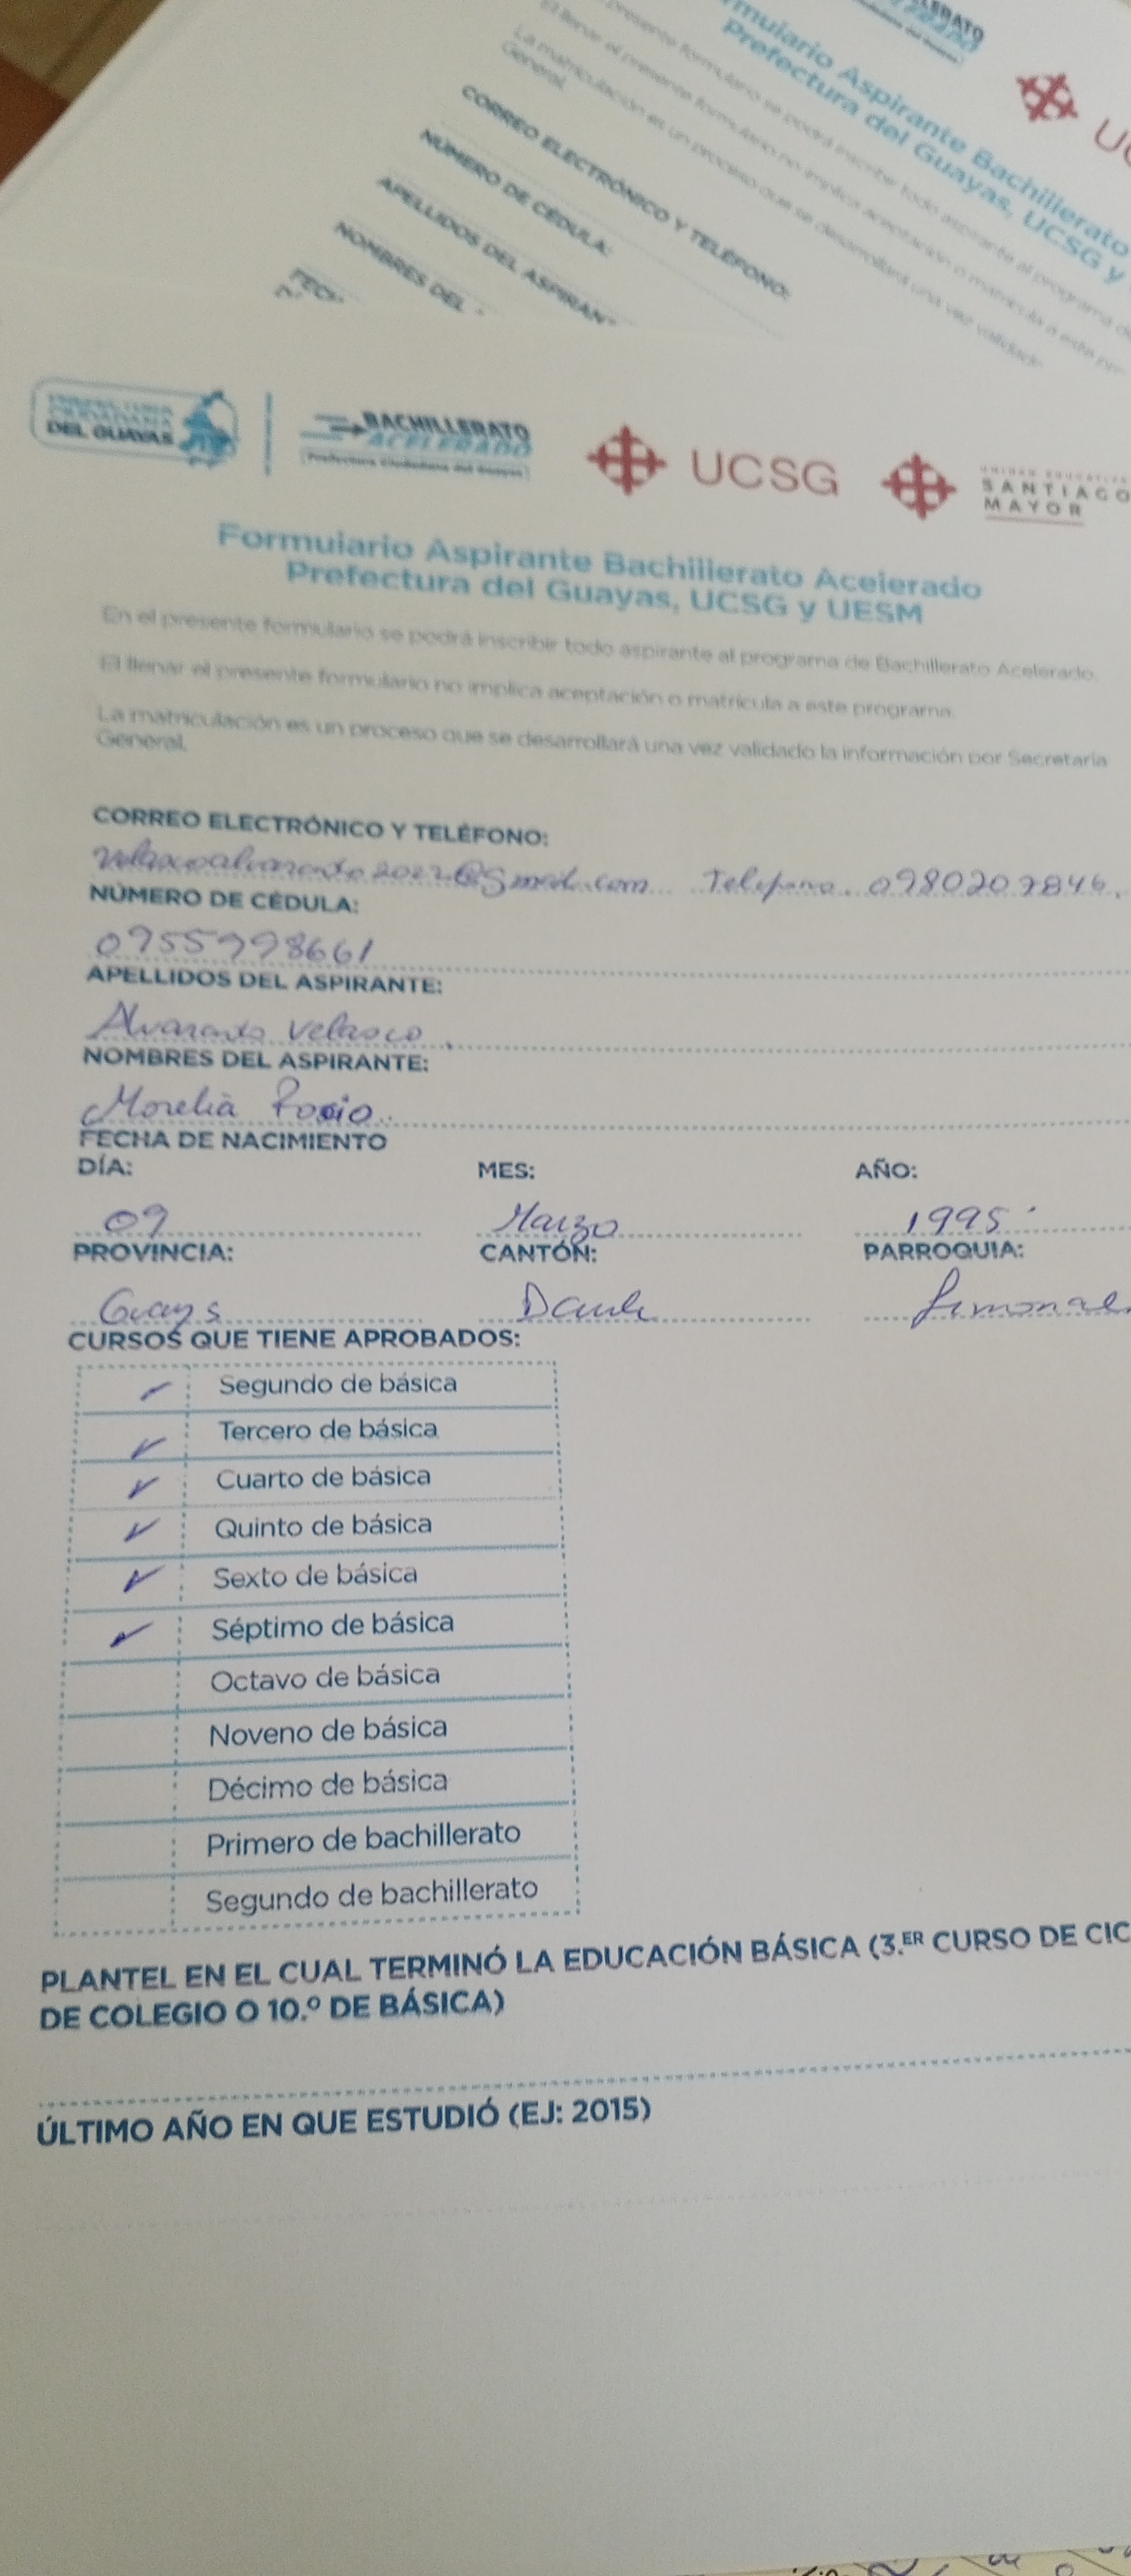 BACHILLERATO
ACELERADO
mulario Aspirante Bachillerato
Prefectura del Guayas, UCSG y
presente formulario se podrá inscribir todo aspirante al programa de
El llenar el presente formulario no implica aceptación o matrícula a este pro
La matriculación es un proceso que se desarrollará una vez validado
General.
CORREO ELECTRÓNICO Y TELÉFONO:
NÚMERO DE CÉDULA:
APELLIDOS DEL ASPIRANT
NOMBRES DEL
FECH
PREFECTURA
CIUDADANA
DEL GUAYAS
BACHILLERATO
ACELERADO
Prefectura Ciudadana del Guayas
UCSG
UNIDAD EDUCATIVA
SANTIAGO
MAYOR
Formulario Aspirante Bachillerato Acelerado
Prefectura del Guayas, UCSG y UESM
En el presente formulario se podrá inscribir todo aspirante al programa de Bachillerato Acelerado.
El llenar el presente formulario no implica aceptación o matrícula a este programa.
La matriculación es un proceso que se desarrollará una vez validado la información por Secretaría
General.
CORREO ELECTRÓNICO Y TELÉFONO:
Telefono. 0980202846.
NÚMERO DE CÉDULA:
0955998661
APELLIDOS DEL ASPIRANTE:
Alvarado Velasco
NOMBRES DEL ASPIRANTE:
Morelia Rocio
FECHA DE NACIMIENTO
DÍA: MES: AÑO:
09 Marzo 1995
PROVINCIA: CANTÓN: PARROQUIA:
Guays Daule Limonal
CURSOS QUE TIENE APROBADOS:
✓ Segundo de básica
✓ Tercero de básica
✓ Cuarto de básica
✓ Quinto de básica
✓ Sexto de básica
✓ Séptimo de básica
Octavo de básica
Noveno de básica
Décimo de básica
Primero de bachillerato
Segundo de bachillerato
PLANTEL EN EL CUAL TERMINÓ LA EDUCACIÓN BÁSICA (3.ER CURSO DE CIC
DE COLEGIO O 10.º DE BÁSICA)
ÚLTIMO AÑO EN QUE ESTUDIÓ (EJ: 2015)